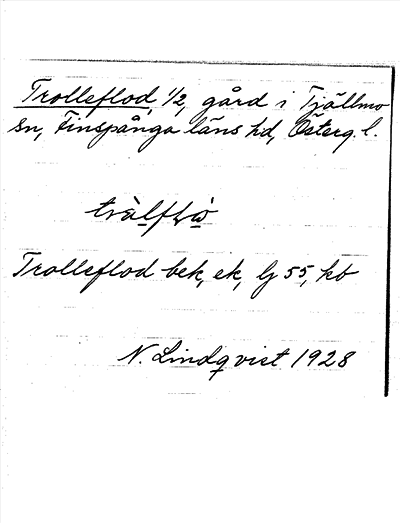 Trolleflod, 1/2, gård i Tjällmo
sn, Finspånga läns hd, Österg. l.
Trolleflod bek, ek, lj 55, kb
N. Lindqvist 1928